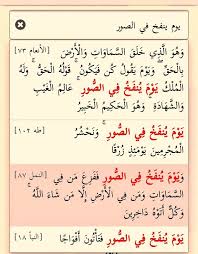 يوم ينفخ في الصور
وَهُوَ الَّذِي خَلَقَ السَّمَاوَاتِ وَالْأَرْضَ [الأنعام ٧٣]
بِالْحَقِّ ۖ وَيَوْمَ يَقُولُ كُن فَيَكُونُ ۚ قَوْلُهُ الْحَقُّ ۚ وَلَهُ
الْمُلْكُ يَوْمَ يُنفَخُ فِي الصُّورِ ۚ عَالِمُ الْغَيْبِ
وَالشَّهَادَةِ ۚ وَهُوَ الْحَكِيمُ الْخَبِيرُ
يَوْمَ يُنفَخُ فِي الصُّورِ ۚ وَنَحْشُرُ [طه ١٠٢]
الْمُجْرِمِينَ يَوْمَئِذٍ زُرْقًا
وَيَوْمَ يُنفَخُ فِي الصُّورِ فَفَزِعَ مَن فِي [النمل ٨٧]
السَّمَاوَاتِ وَمَن فِي الْأَرْضِ إِلَّا مَن شَاءَ اللَّهُ ۚ
وَكُلٌّ أَتَوْهُ دَاخِرِينَ
يَوْمَ يُنفَخُ فِي الصُّورِ فَتَأْتُونَ أَفْوَاجًا [النبأ ١٨]